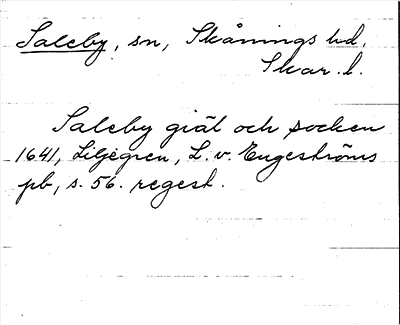 Saleby, sn, Skånings hd.
Skar. l.
Saleby giäl och socken
1641, Liljegren, L. v. Engeströms
pb, s. 56. regest.